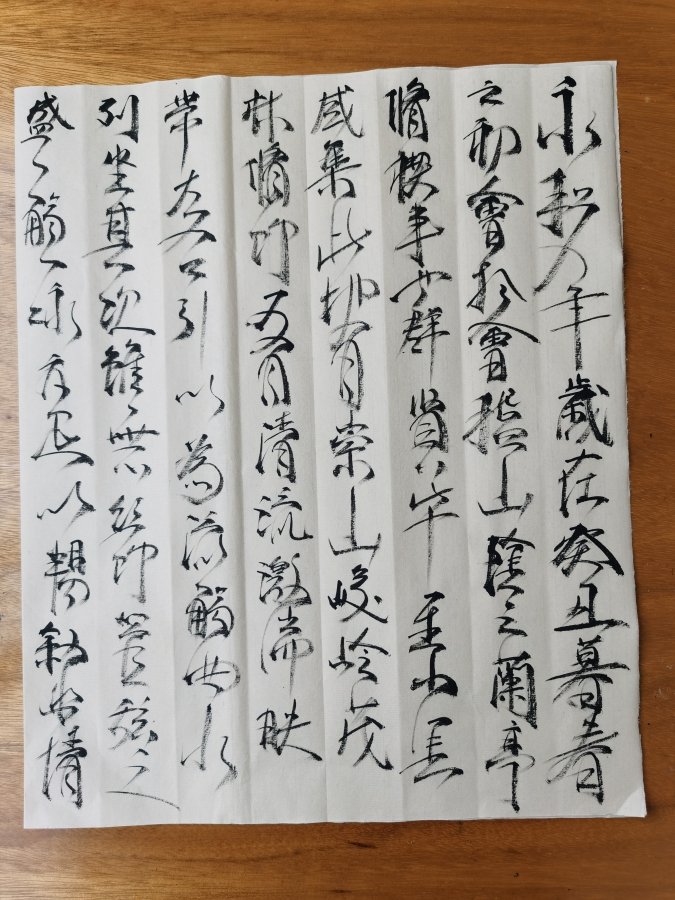 永和九年歲在癸丑暮春
之初會於會稽山陰之蘭亭
脩禊事也群賢畢至少長
咸集此地有崇山峻嶺茂
林脩竹又有清流激湍映
帶左右引以為流觴曲水
列坐其次雖無絲竹管弦之
盛一觴一詠亦足以暢敘幽情